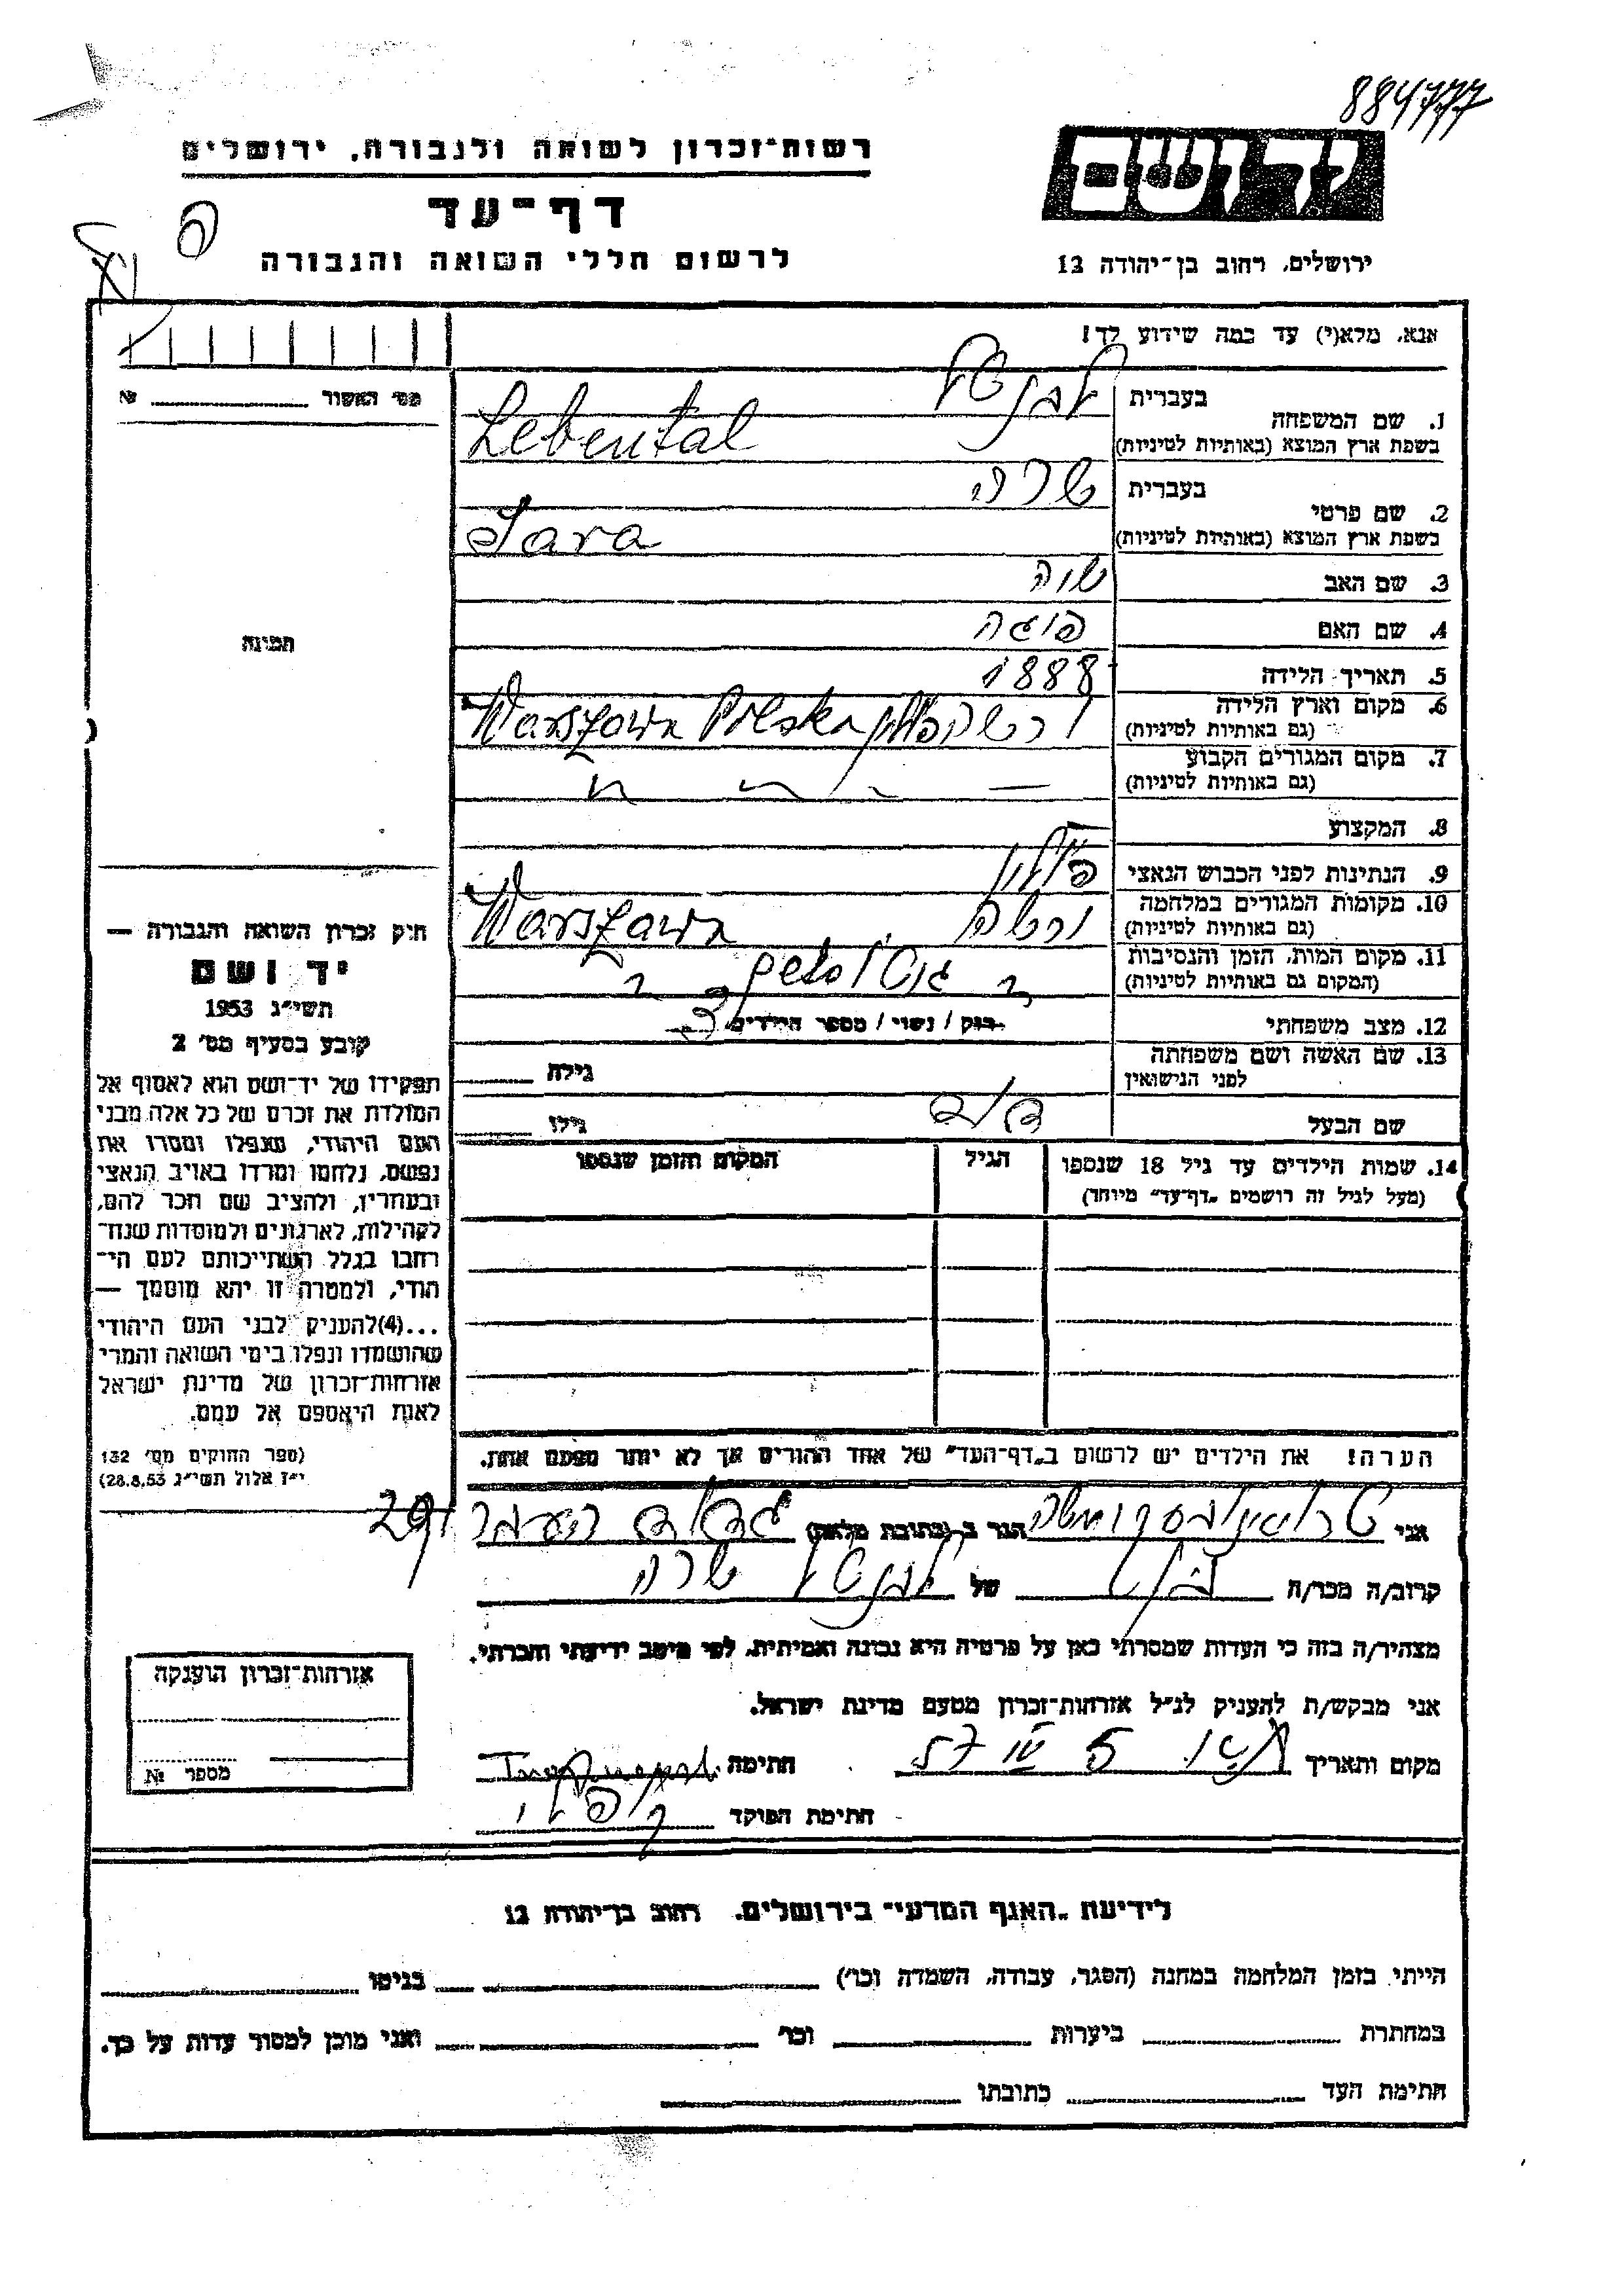 884777
רשות־זכרון לשואה ולגבורה, ירושלים
יד ושם
דף־עד
לרשום חללי השואה והגבורה
ירושלים, רחוב בן־יהודה 12
אנא, מלא(י) עד כמה שידוע לך!
מס׳ האשור № 
1. שם המשפחה בעברית לבנטל
בשפת ארץ המוצא (באותיות לטיניות) Lebental
2. שם פרטי בעברית שרה
בשפת ארץ המוצא (באותיות לטיניות) Sara
3. שם האב
4. שם האם
תמונה
5. תאריך הלידה 1888
6. מקום וארץ הלידה (גם באותיות לטיניות) ורשה פולין Warszawa Polska
7. מקום המגורים הקבוע (גם באותיות לטיניות)
8. המקצוע
9. הנתינות לפני הכבוש הנאצי פולין
10. מקומות המגורים במלחמה (גם באותיות לטיניות) ורשה Warszawa
11. מקום המות, הזמן והנסיבות (המקום גם באותיות לטיניות)
12. מצב משפחתי רווק / נשוי / מספר הילדים
13. שם האשה ושם משפחתה לפני הנישואין גילה
שם הבעל גילו
14. שמות הילדים עד גיל 18 שנספו הגיל המקום והזמן שנספו
(מעל לגיל זה רושמים „דף־עד״ מיוחד)
הערה! את הילדים יש לרשום ב„דף־העד״ של אחד ההורים אך לא יותר מפעם אחת.
חוק זכרון השואה והגבורה —
יד ושם
תשי״ג 1953
קובע בסעיף מס׳ 2
תפקידו של יד־ושם הוא לאסוף אל
המולדת את זכרם של כל אלה מבני
העם היהודי, שנפלו ומסרו את
נפשם, נלחמו ומרדו באויב הנאצי
ובעוזריו, ולהציב שם וזכר להם,
לקהילות, לארגונים ולמוסדות שנח־
רבו בגלל השתייכותם לעם הי־
הודי, ולמטרה זו יהא מוסמך —
...(4)להעניק לבני העם היהודי
שהושמדו ונפלו בימי השואה והמרי
אזרחות־זכרון של מדינת ישראל
לאות היאספם אל עמם.
(ספר החוקים מס׳ 132
י״ז אלול תשי״ג 28.8.53)
אני הגר ב (כתובת מלאה)
קרוב/ה מכר/ה של לבנטל שרה
מצהיר/ה בזה כי העדות שמסרתי כאן על פרטיה היא נכונה ואמיתית, לפי מיטב ידיעתי והכרתי.
אני מבקש/ת להעניק לנ״ל אזרחות־זכרון מטעם מדינת ישראל.
מקום ותאריך חתימה
חתימת הפוקד
אזרחות־זכרון הוענקה
מספר №
לידיעת „האגף המדעי״ בירושלים, רחוב בן־יהודה 12
הייתי בזמן המלחמה במחנה (הסגר, עבודה, השמדה וכו׳) בגיטו
במחתרת ביערות וכו׳ ואני מוכן למסור עדות על כך.
חתימת העד כתובתו